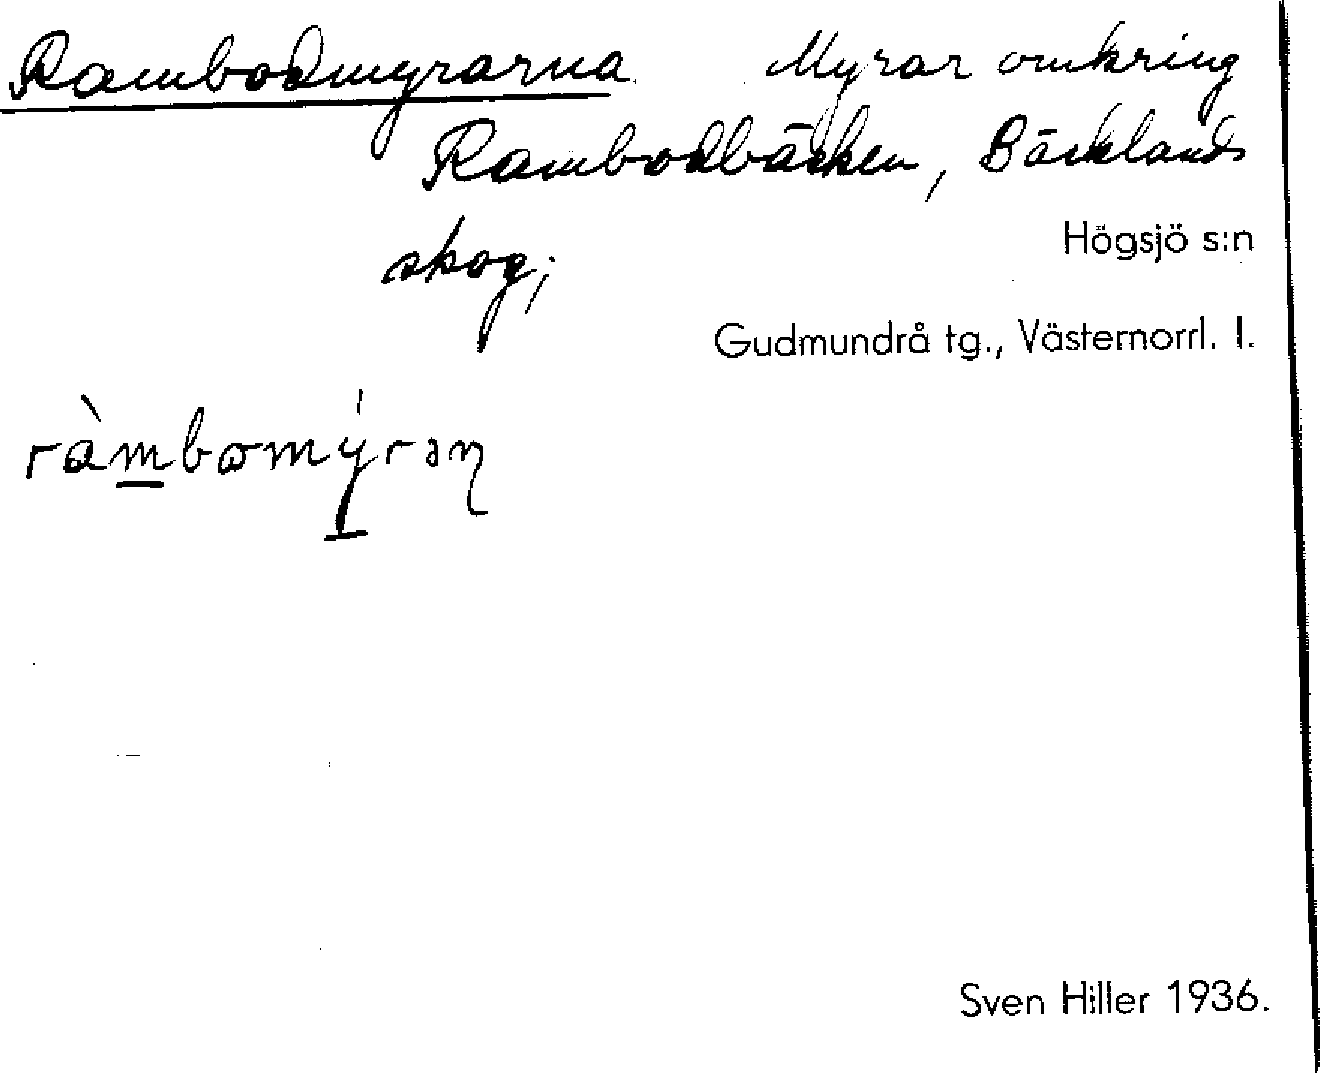 Rambodmyrarna. Myrar omkring
Rambodbäcken, Bäcklands
skog;
Högsjö s:n
Gudmundrå tg., Västernorrl. l.
ràmbomýrəɳ
Sven Hiller 1936.